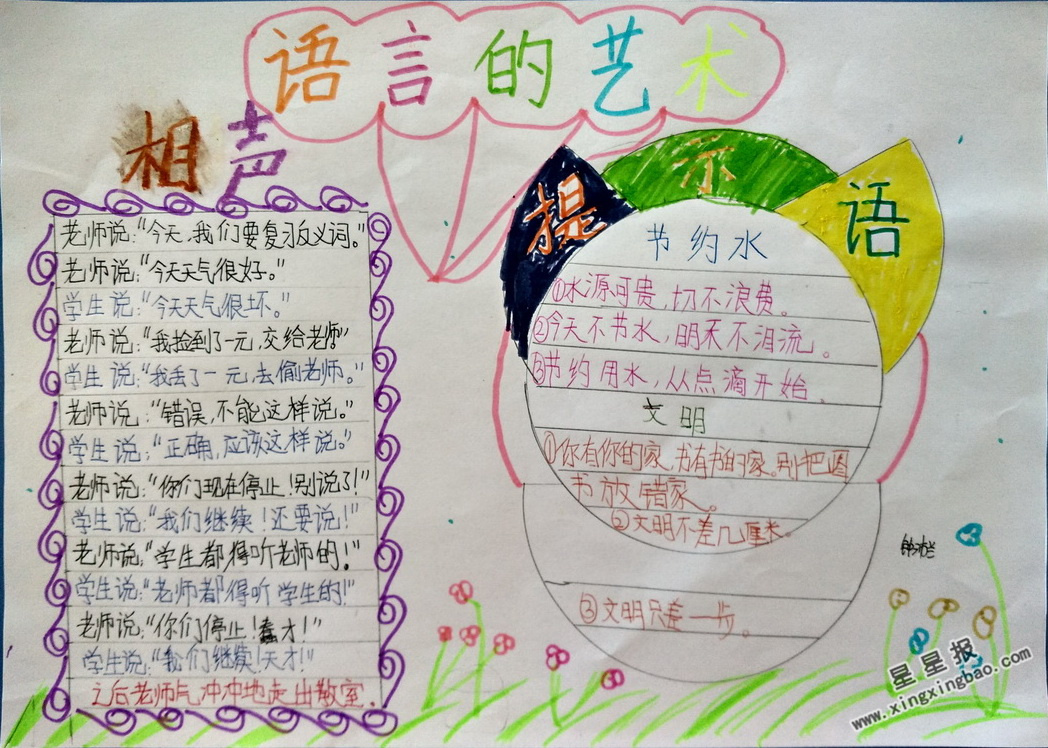 语言的艺术
相声
老师说:“今天,我们要复习反义词。”
老师说:“今天天气很好。”
学生说:“今天天气很坏。”
老师说:“我捡到了一元,交给老师”
学生说:“我丢了一元,去偷老师。”
老师说:“错误,不能这样说。”
学生说:“正确,应该这样说。”
老师说:“你们现在停止!别说了!”
学生说:“我们继续!还要说!”
老师说:“学生都得听老师的!”
学生说:“老师都得听学生的!”
老师说:“你们停止!蠢才!”
学生说:“我们继续!天才!”
之后老师气冲冲地走出教室。
提示语
节约水
①水源可贵,切不浪费。
②今天不节水,明天不泪流。
③节约用水,从点滴开始
文明
①你有你的家,书有书的家。别把图
书放错家。
②文明不差几厘米。
③文明只差一步。
星星报
www.xingxingbao.com